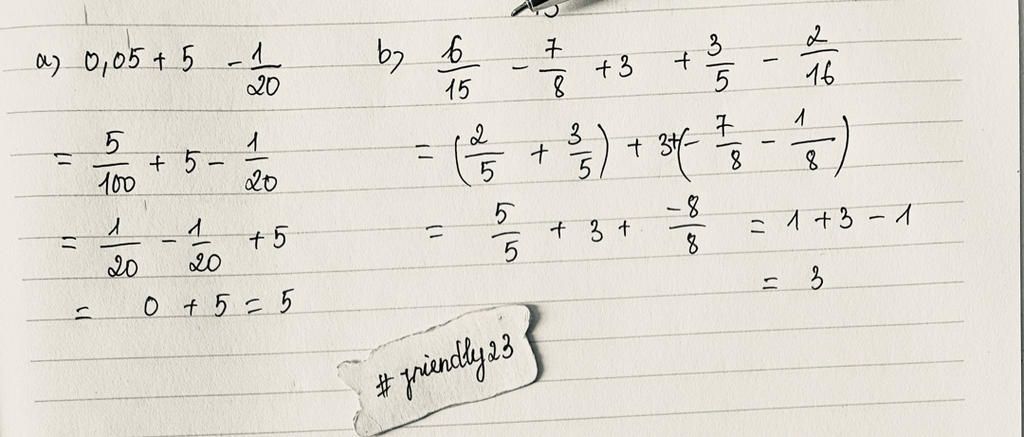 a) 0,05 + 5 - 1/20
= 5/100 + 5 - 1/20
= 1/20 - 1/20 + 5
= 0 + 5 = 5
b) 6/15 - 7/8 + 3 + 3/5 - 2/16
= (2/5 + 3/5) + 3 + (- 7/8 - 1/8)
= 5/5 + 3 + -8/8 = 1 + 3 - 1
= 3
# friendly23